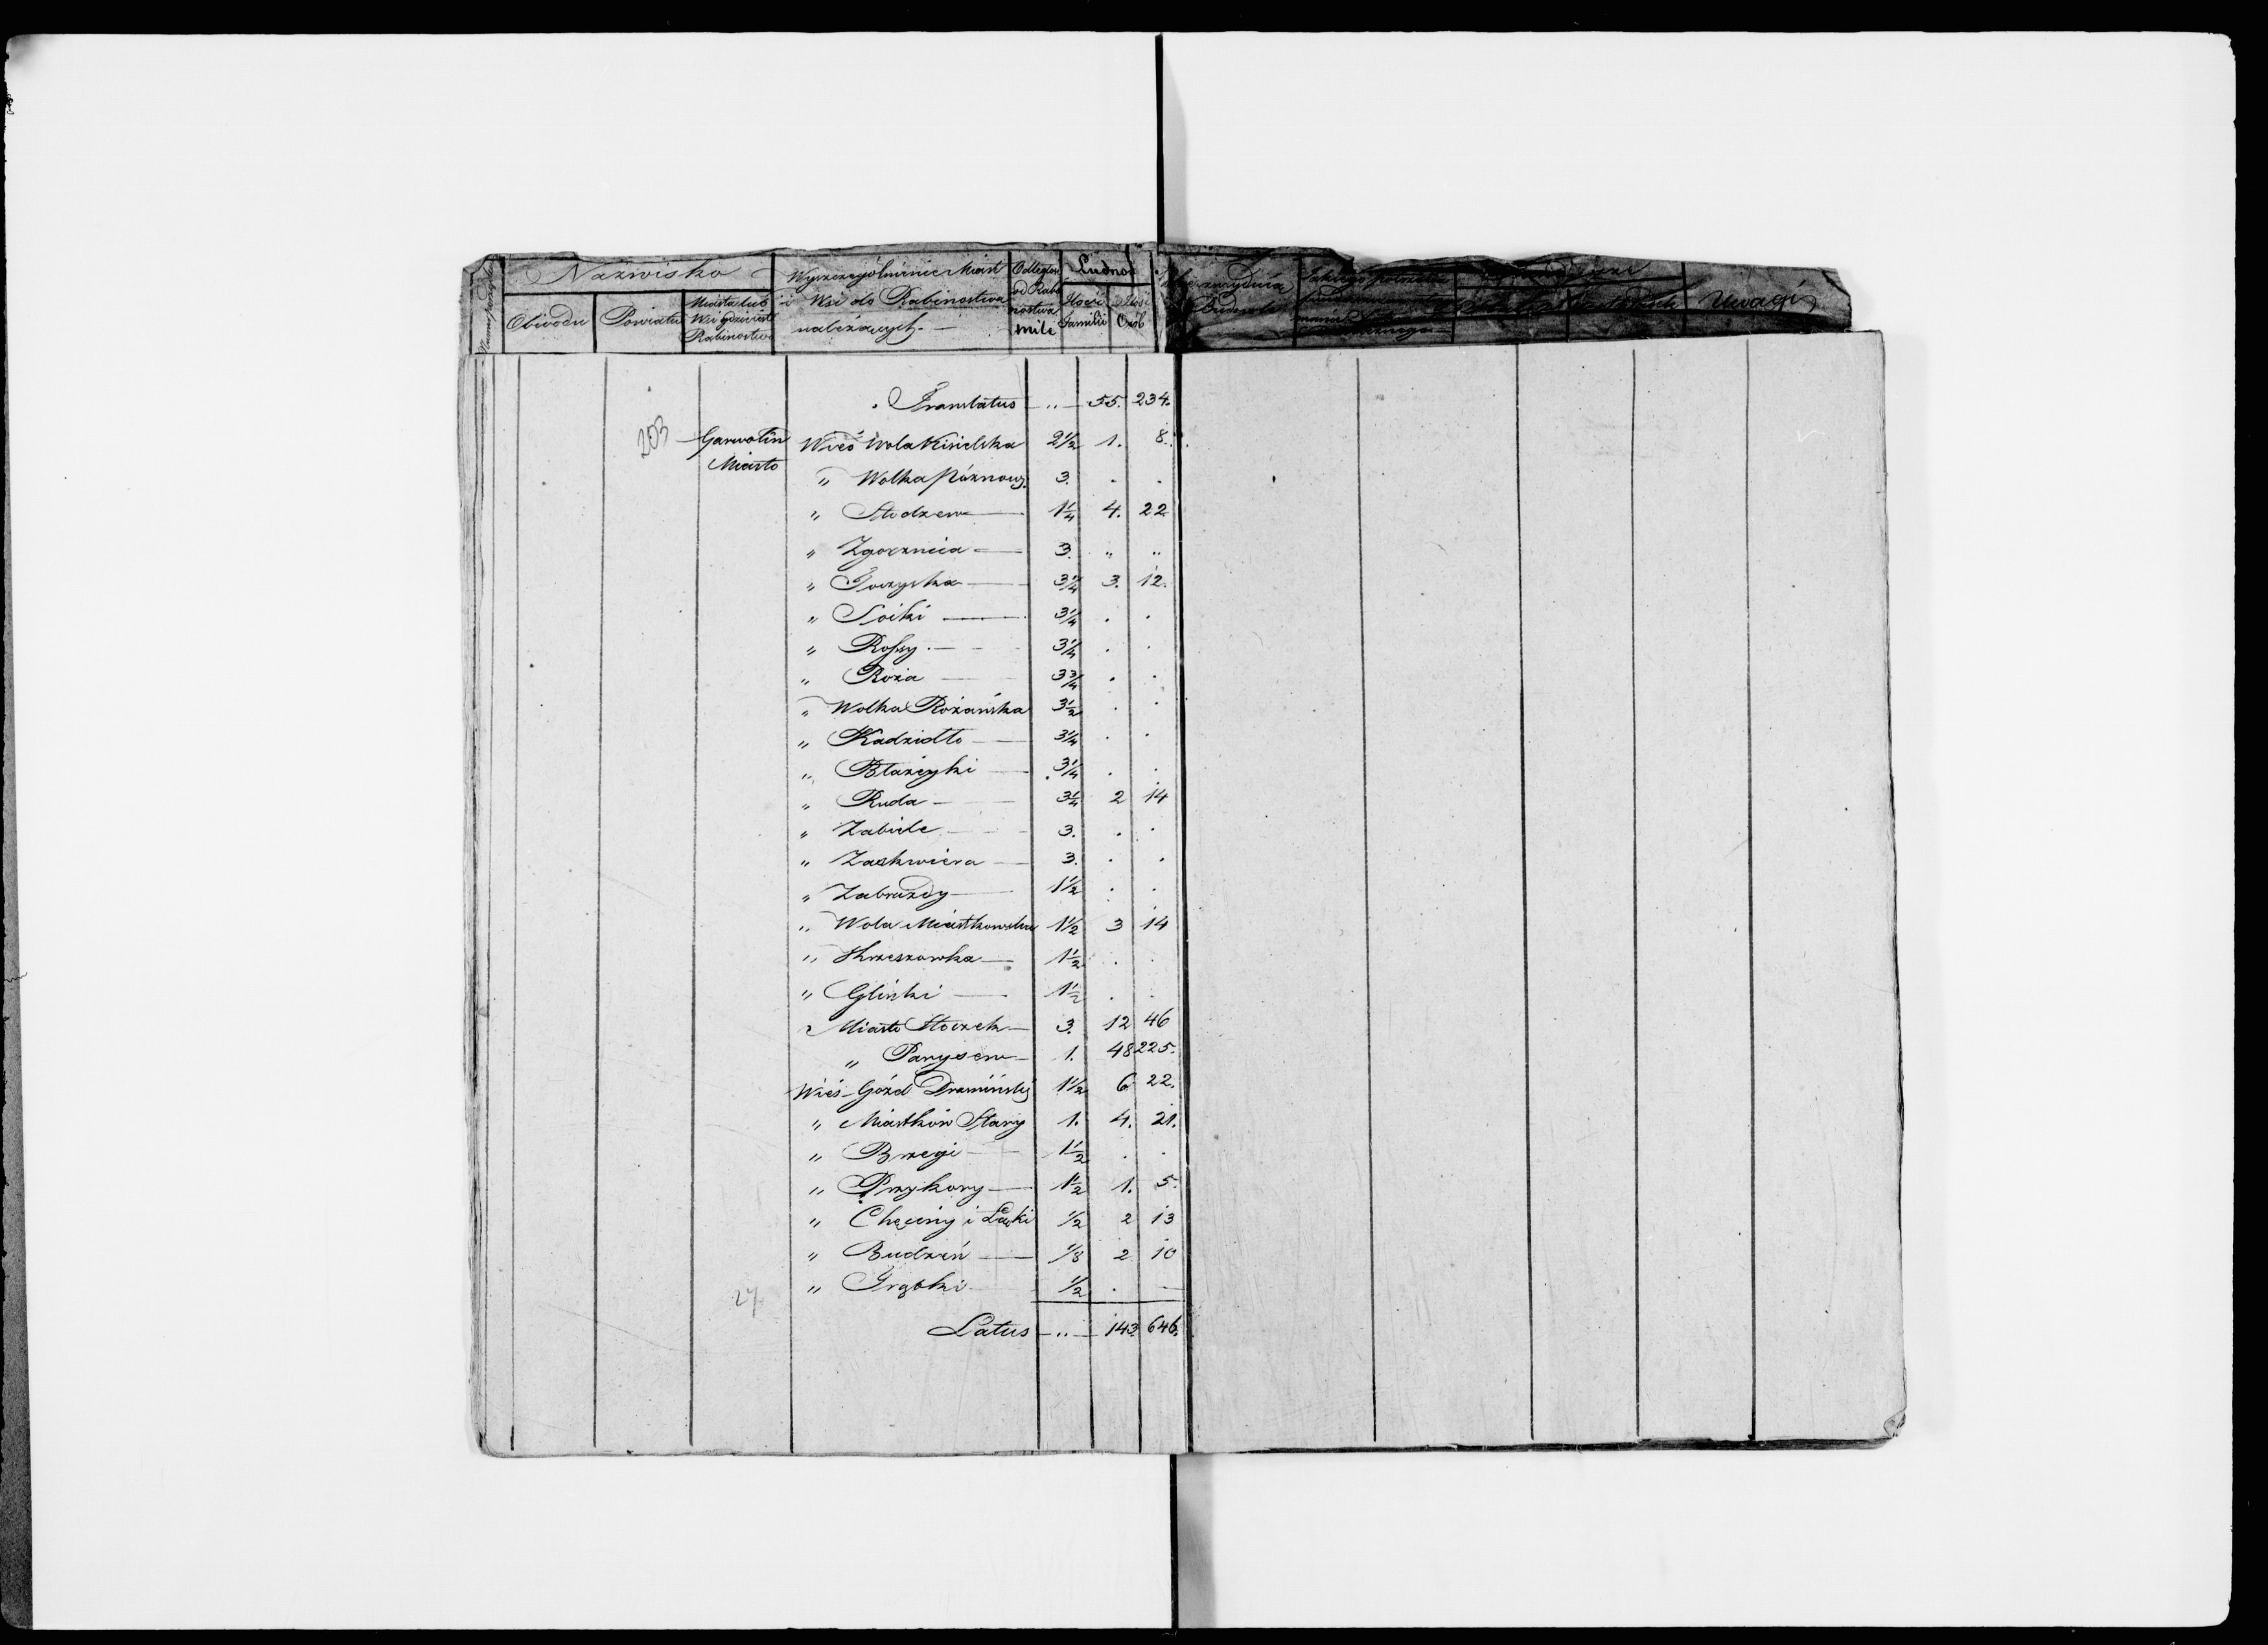 Nazwisko
Obwodu
Powiatu
Miasta lub
Wsi gdzie jest
Rabinostwo
Wyszczególnienie Miast
i Wsi do Rabinostwa
należących.—
Odległość
od Rabi
nostwa
mile
Ludność
Ilość
Familii
Ilość
Osób
Uwagi
Translatus — .. — 55. 234.
203 Garwolin Wieś Wola Kisielska 2½ 1. 8.
Miasto
" Wolka Różnow. 3. . .
" Stodzew — 1¼ 4. 22
" Zgorznica — 3. " "
" Toczyska — 3¼ 3. 12.
" Soiki — 3¼ . .
" Rossy. — 3¼ . .
" Roża — 3¾ . .
" Wolka Rożańska 3½ . .
" Kadzidło — 3¼ . .
" Błażeyki — 3¼ . .
" Ruda — 3¼ 2 14
" Zabiele — 3. . .
" Zaskwiera — 3. . .
" Zabruzdy — 1½ . .
" Wola Miastkowska 1½ 3 14
" Krzeszowka — 1½ . .
" Glinki — 1½ . .
" Miasto Stoczek — 3. 12 46
" Parysew — 1. 48 225.
Wieś Gózd Draminski 1½ 6 22.
" Miastków Stary 1. 4. 21.
" Brzegi — 1½ . .
" Przykory — 1½ 1. 5.
" Chęciny i Laski ½ 2 13
" Budzeń — ⅛ 2 10
" Trąbki ½ . —
27
Latus — .. — 143. 646.